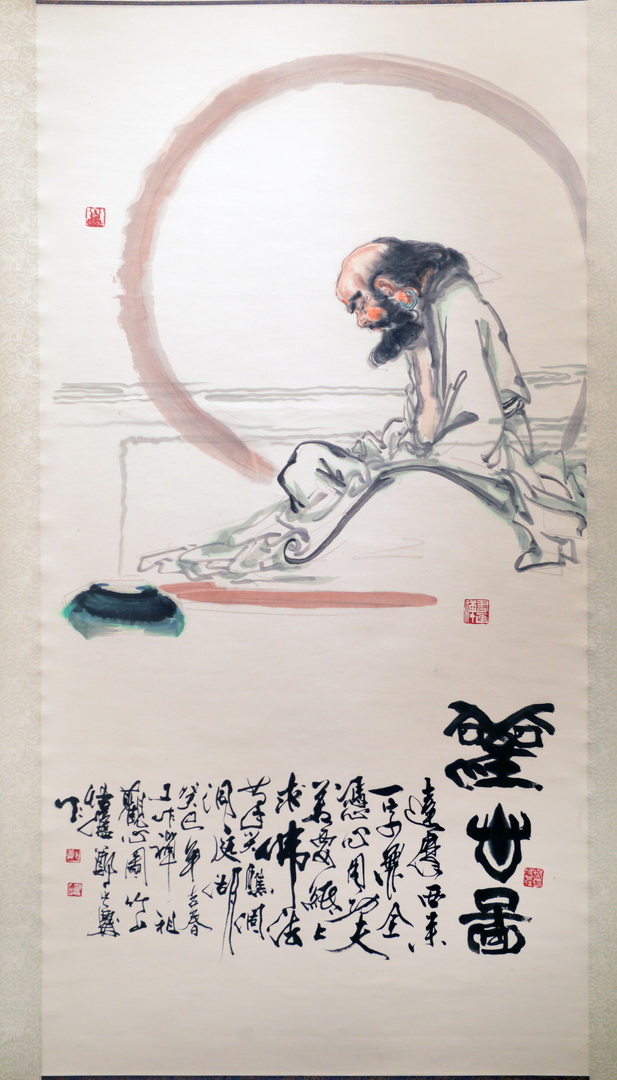 觀心圖
達摩西來
一字無全
憑心用功夫
若要紙上
求佛法
筆尖蘸凅
洞庭湖
癸巳年春
作禪祖
觀心圖竹山
鄭